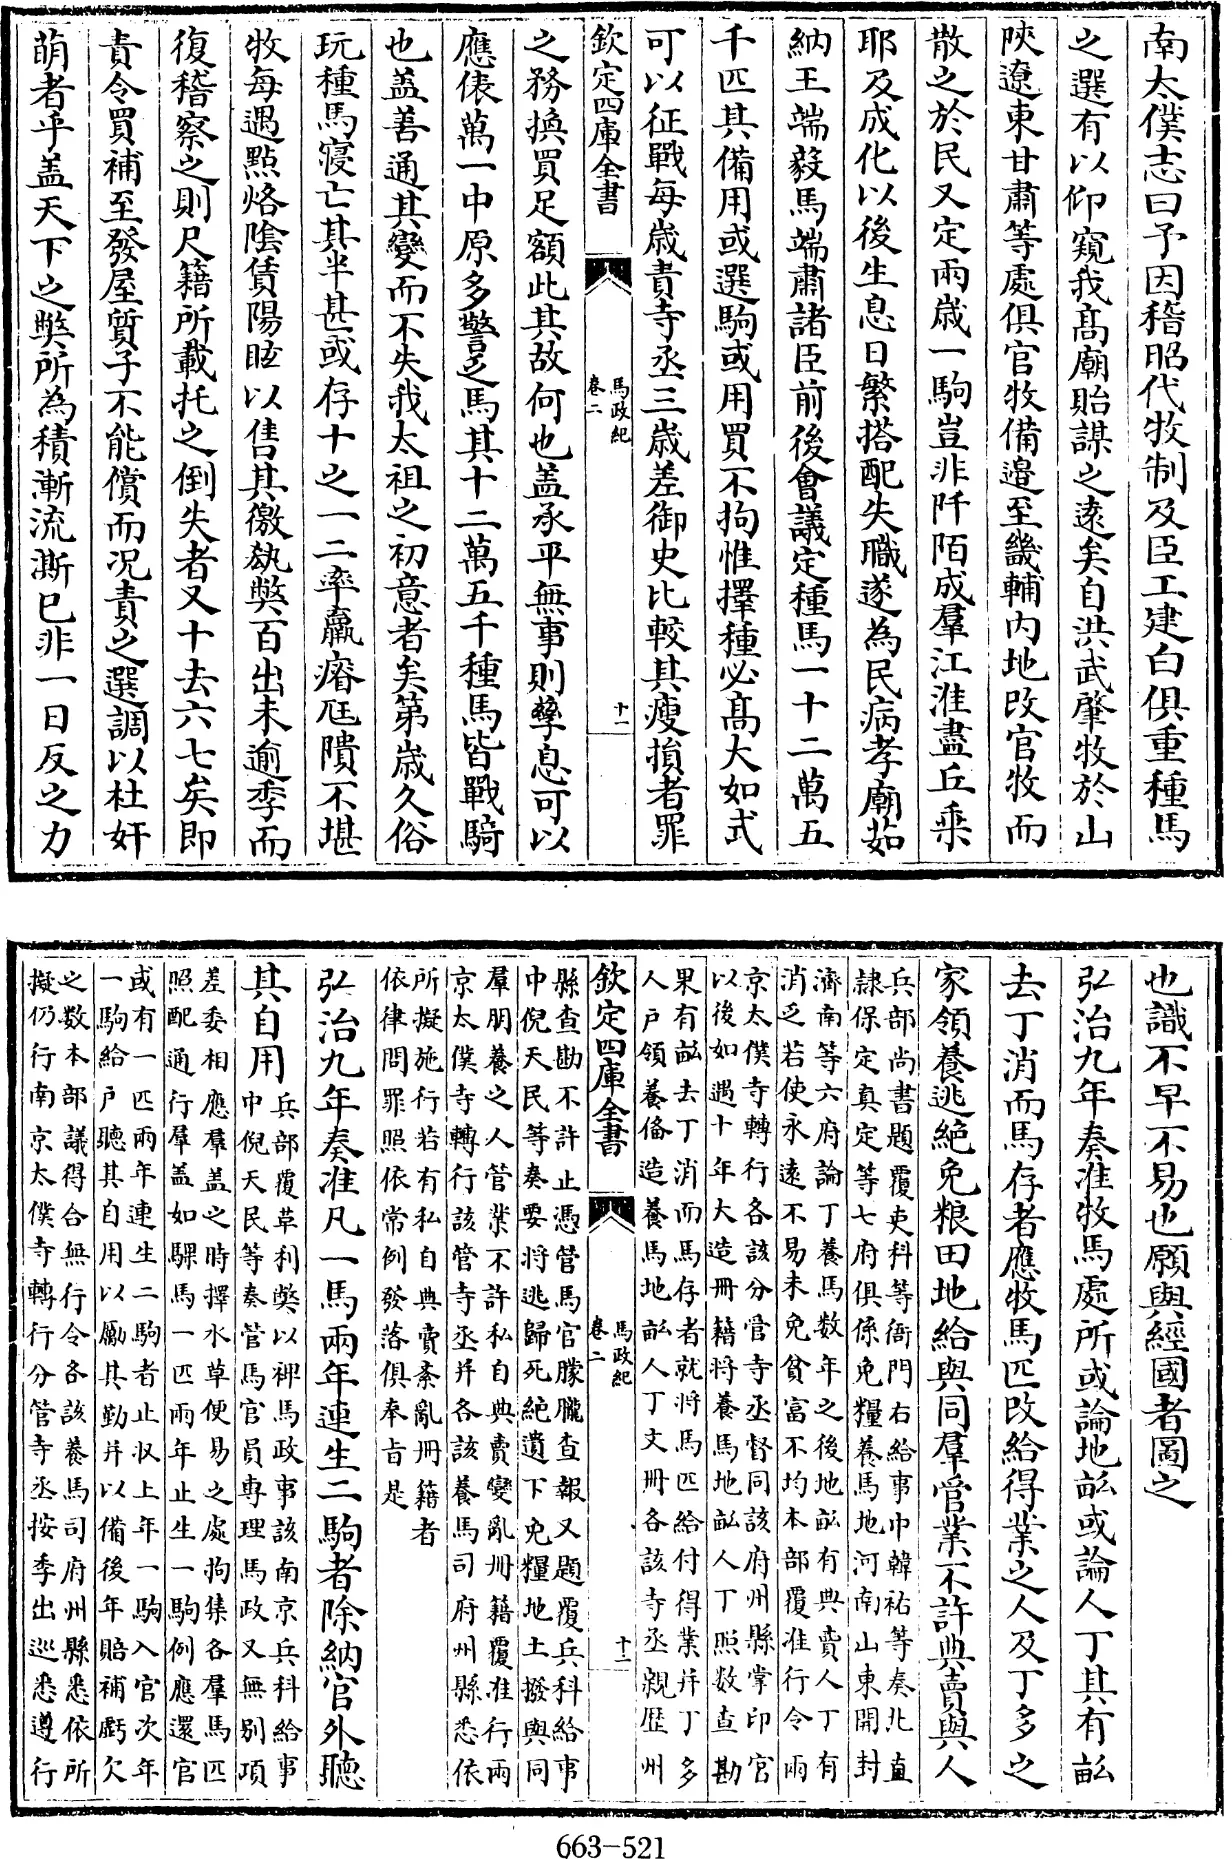 南太僕志曰予因稽昭代牧制及臣工建白俱重種馬
之選有以仰窺我髙廟貽謀之逺矣自洪武肇牧於山
陜遼東甘肅等處俱官牧備邉至畿輔内地改官牧而
散之於民又定兩歲一駒豈非阡陌成羣江淮盡丘乗
耶及成化以後生息日繁搭配失職遂為民病孝廟茹
納王端毅馬端肅諸臣前後會議定種馬一十二萬五
千匹其備用或選駒或用買不拘惟擇種必髙大如式
可以征戰每歲責寺丞三歲差御史比較其瘦損者罪
欽定四庫全書
馬政紀
卷二
十一
之務換買足額此其故何也盖承平無事則孳息可以
應俵萬一中原多警乏馬其十二萬五千種馬皆戰騎
也盖善通其變而不失我太祖之初意者矣第歲久俗
玩種馬寖亡其半甚或存十之一二率羸瘠尫隤不堪
牧每遇點烙隂賃陽眩以售其徼埶獘百出未逾季而
復稽察之則尺籍所載托之倒失者又十去六七矣即
責令買補至發屋質子不能償而况責之選調以杜奸
萌者乎盖天下之獘所為積漸流澌已非一日反之力
也識不早不易也願與經國者圖之
弘治九年奏准牧馬處所或論地畝或論人丁其有畝
去丁消而馬存者應牧馬匹改給得業之人及丁多之
家領養逃絶免粮田地給與同羣管業不許典賣與人
兵部尚書題覆吏科等衙門右給事中韓祐等奏北直
隷保定真定等七府俱係免糧養馬地河南山東開封
濟南等六府論丁養馬數年之後地畝有典賣人丁有
消乏若使永逺不易未免貧富不均本部覆准行令兩
京太僕寺轉行各該分管寺丞督同該府州縣掌印官
以後如遇十年大造冊籍將養馬地畝人丁照数查勘
果有畝去丁消而馬存者就將馬匹給付得業并丁多
人户領養俻造養馬地畝人丁文冊各該寺丞親歴州
欽定四庫全書
馬政紀
卷二
十二
縣查勘不許止憑管馬官朦朧查報又題覆兵科給事
中倪天民等奏要將逃歸死絶遺下免糧地土撥與同
羣朋養之人管業不許私自典賣變亂冊籍覆准行兩
京太僕寺轉行該管寺丞并各該養馬司府州縣悉依
所擬施行若有私自典賣紊亂冊籍者
依律問罪照依常例發落俱奉旨是
弘治九年奏准凡一馬兩年連生二駒者除納官外聽
其自用
兵部覆草利獘以裨馬政事該南京兵科給事
中倪天民等奏管馬官員専理馬政又無别項
差委相應羣盖之時擇水草便易之處拘集各羣馬匹
照配通行羣盖如騍馬一匹兩年止生一駒例應還官
或有一匹兩年連生二駒者止収上年一駒入官次年
一駒給户聽其自用以勵其勤并以備後年賠補虧欠
之数本部議得合無行令各該養馬司府州縣悉依所
擬仍行南京太僕寺轉行分管寺丞按季出廵悉遵行
663-521